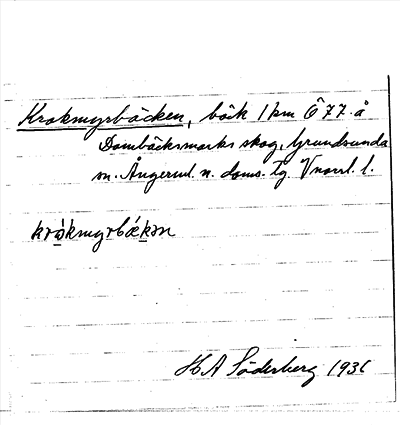 Krokmyrbäcken, bäck 1 km Ö 77 å
Dombäcksmarks skog, Grundsunda
sn. Ångerml. n. doms. tg. Vnorrl. l.
krokmyrbækən
H A Söderberg 1936